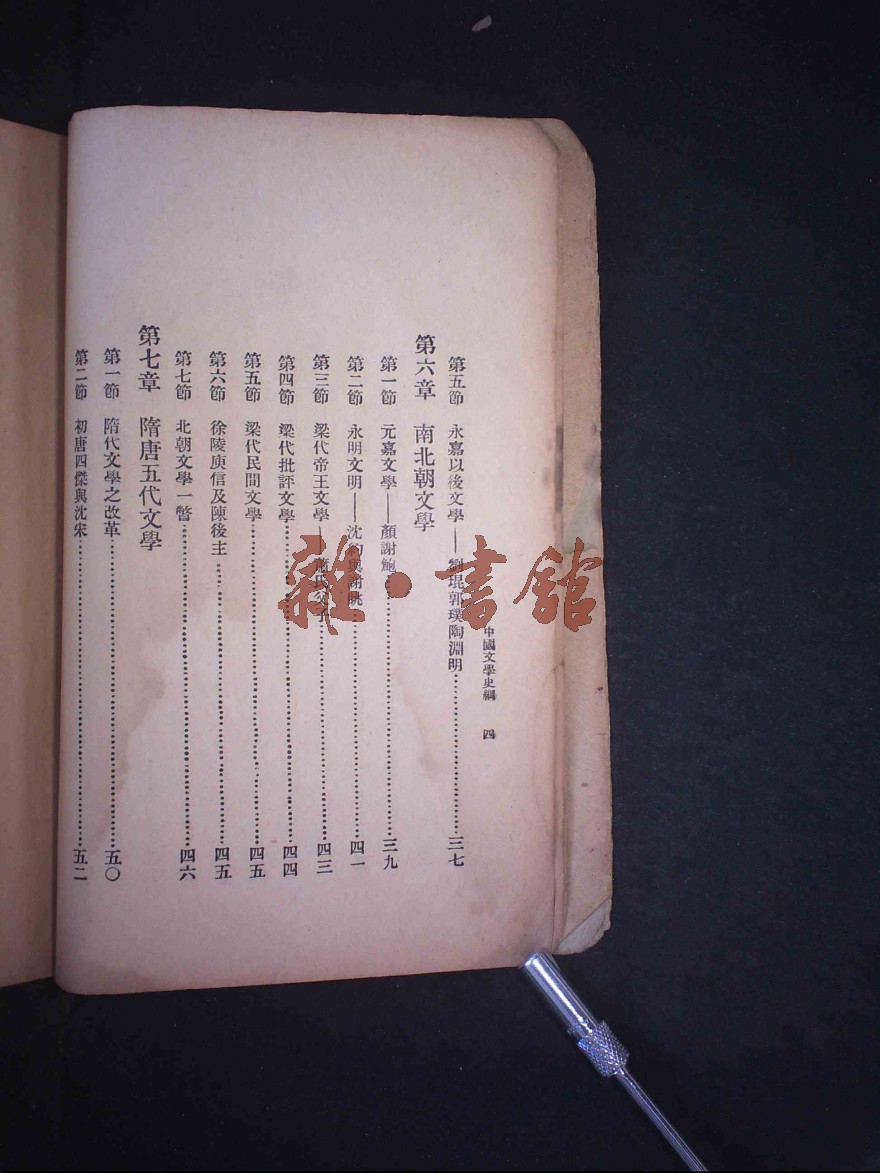 中國文學史綱 四
第五節 永嘉以後文學——劉琨郭璞陶淵明……三七
第六章 南北朝文學
第一節 元嘉文學——顏謝鮑……三九
第二節 永明文明——沈約與謝朓……四一
第三節 梁代帝王文學——蕭氏父子……四三
第四節 梁代批評文學……四四
第五節 梁代民間文學……四五
第六節 徐陵庾信及陳後主……四五
第七節 北朝文學一瞥……四六
第七章 隋唐五代文學
第一節 隋代文學之改革……五〇
第二節 初唐四傑與沈宋……五二
雜·書館